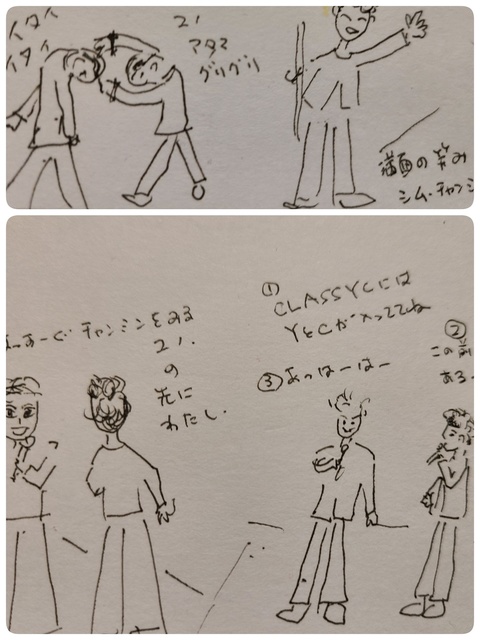 イタイ
イタイ
ユノ
アタマ
グリグリ
満面の笑み
シム・チャンミ
まっすーぐ チャンミンをみる
ユノ
の
先に
わたし.
①
CLASSYCには
YとCが入っててね
②
この前
ある
③ あっはーはー